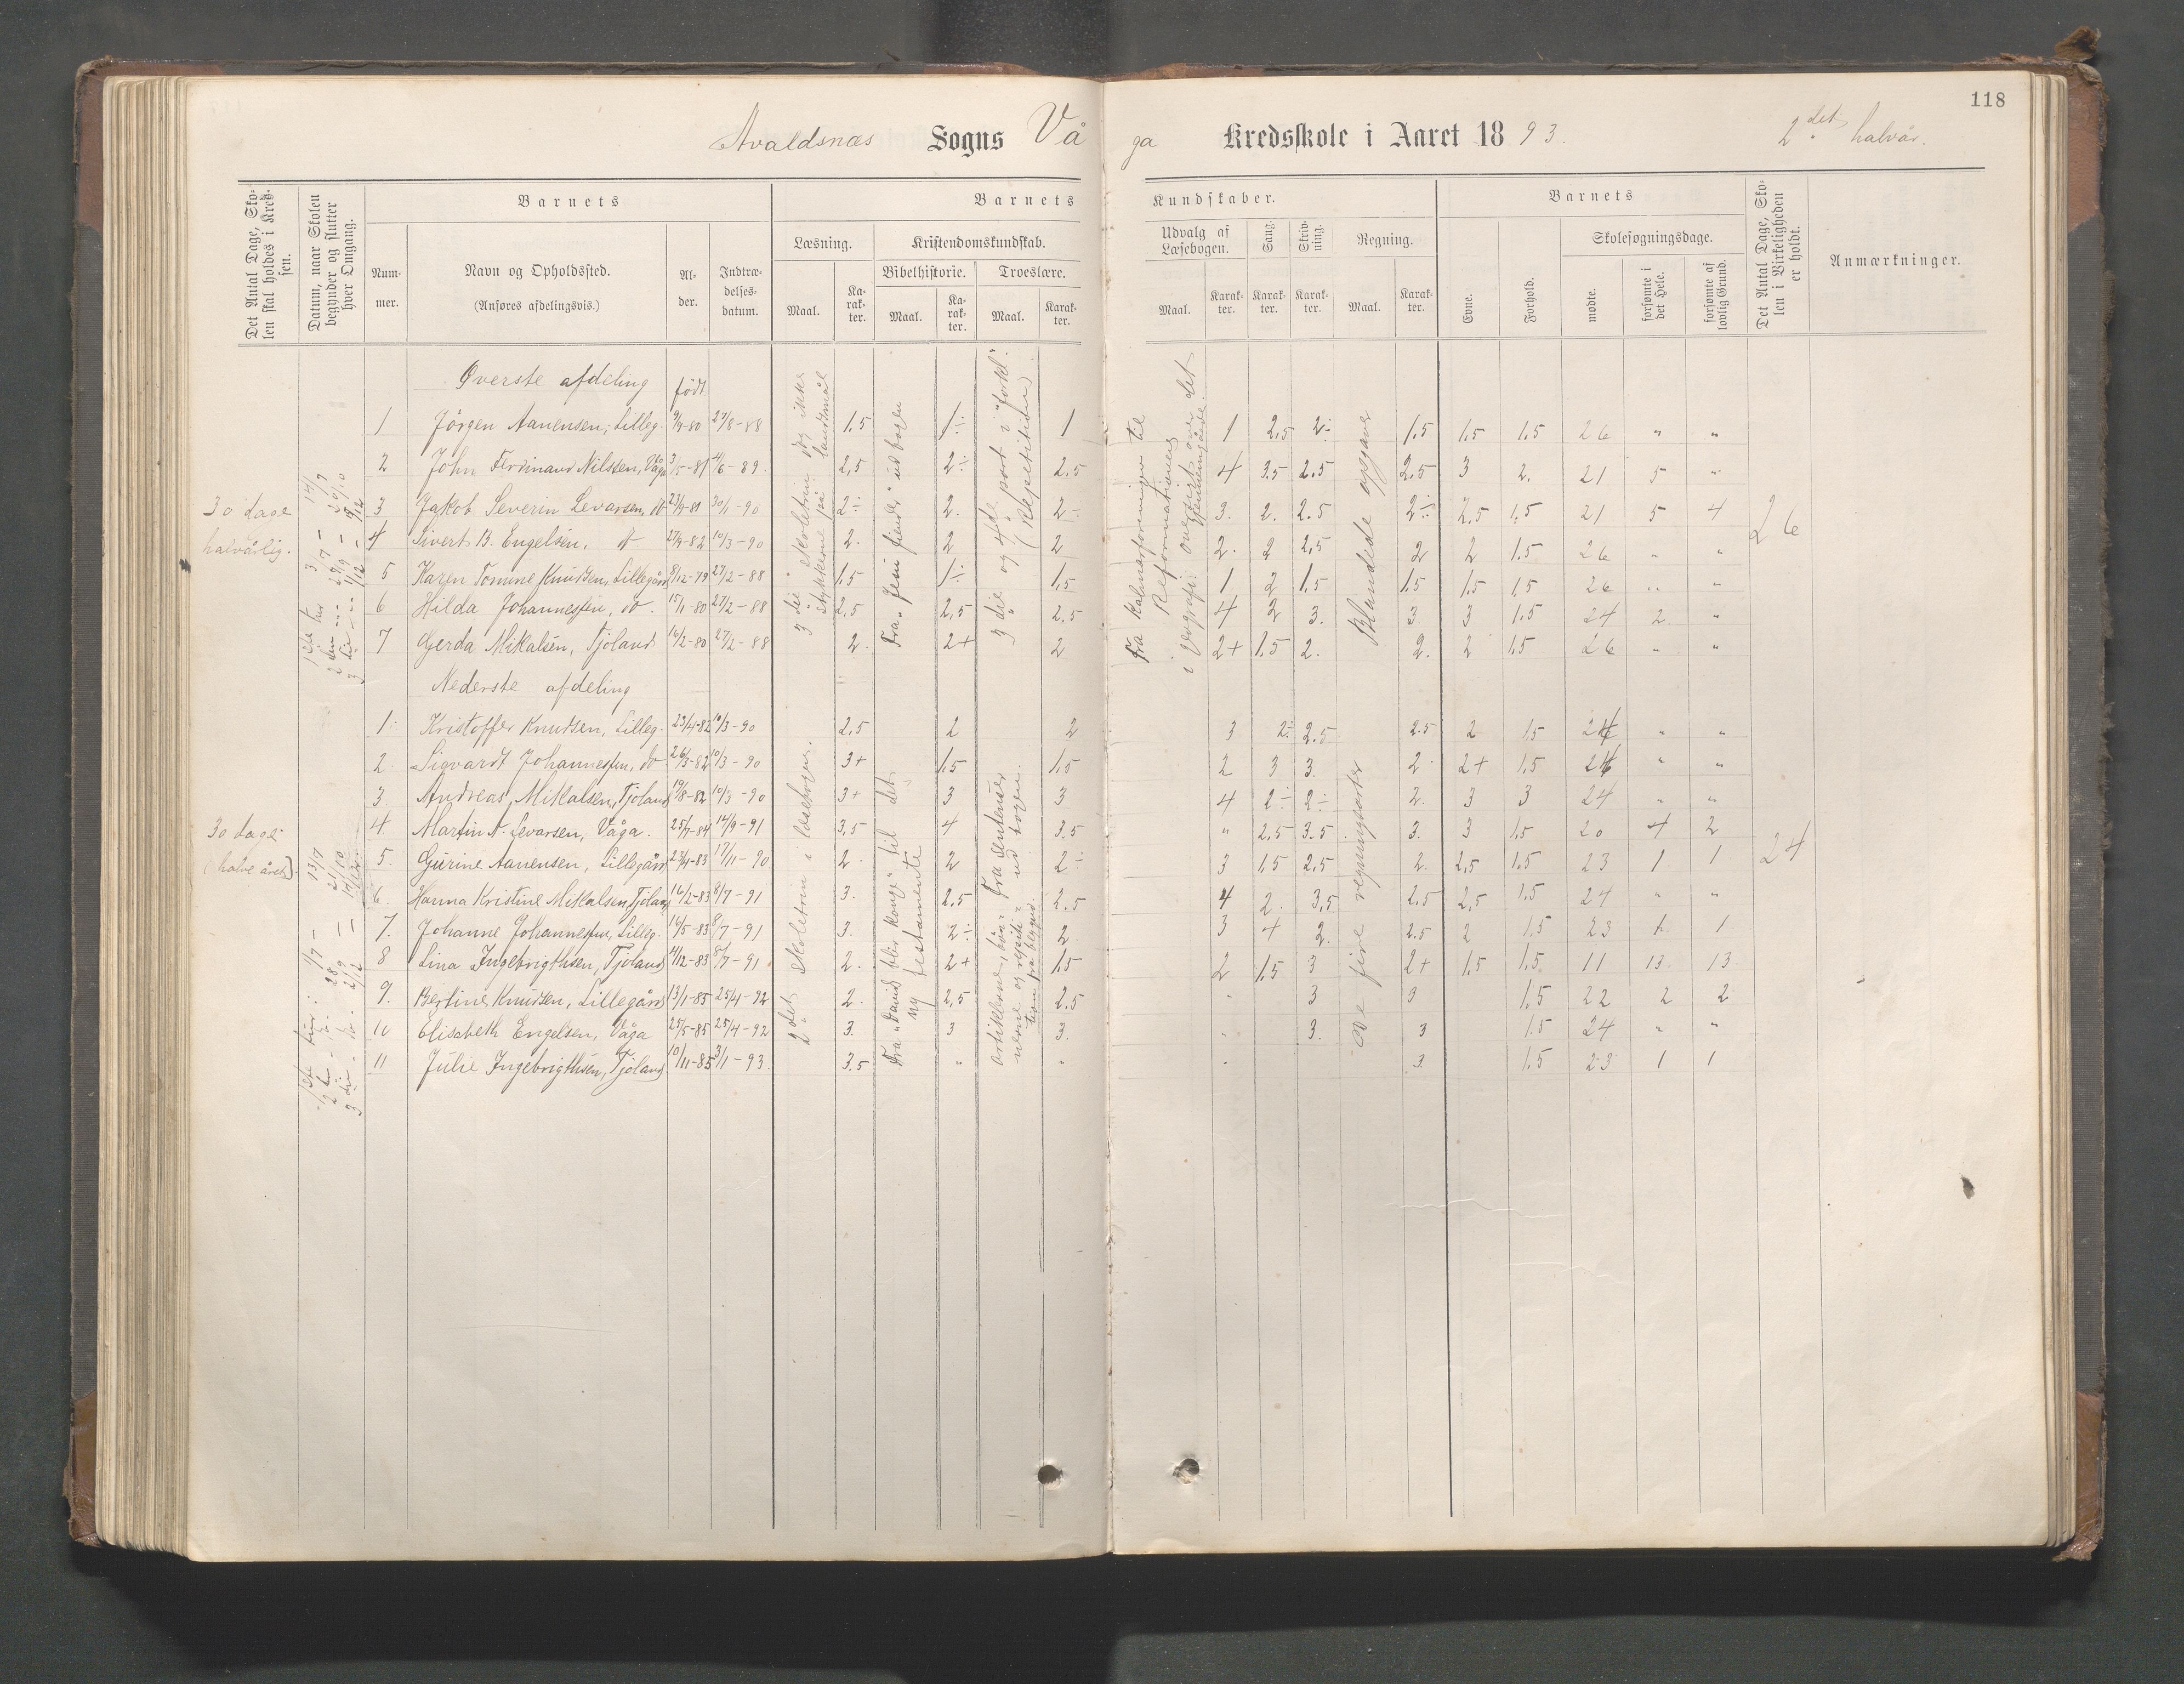 118
Avaldsnæs Sogns Våga Kredsskole i Aaret 1893. 2det halvår.
Det Antal Dage, Skolen skal holdes i Kredsen.
Datum, naar Skolen begynder og slutter hver Omgang.
Barnets
Nummer.
Navn og Opholdssted.
(Anføres afdelingsvis.)
Alder.
Indtrædelsesdatum.
Barnets Kundskaber.
Læsning.
Maal.
Karakter.
Kristendomskundskab.
Bibelhistorie.
Maal.
Karakter.
Troeslære.
Maal.
Karakter.
Udvalg af Læsebogen.
Maal.
Karakter.
Sang.
Karakter.
Skrivning.
Karakter.
Regning.
Maal.
Karakter.
Barnets
Evne.
Forhold.
Skolesøgningsdage.
mødte.
forsømte i det Hele.
forsømte af lovlig Grund.
Det Antal Dage, Skolen i Virkeligheden er holdt.
Anmærkninger.
Øverste afdeling født
30 dage
halvårlig.
3 die skoletrin dog ikke
stykkerne på landsmål
Fra "Jesu fiender" ud bogen
3 die og 4 de part i "forkl."
(Repetition)
Fra Kalmarforeningen til
Reformationen
i Geografi: oversigt over det
gjennemgåede.
Blandede opgaver
1 Jörgen Aanensen, Lilleg. 9/9-80 27/8-88 1,5 1÷ 1 1 2,5 2÷ 1,5 1,5 1,5 26 " "
2 John Ferdinand Nilsen, Våga 3/5-81 4/6-89. 2,5 2÷ 2.5 4 3.5 2.5 2.5 3 2. 21 5 "
3 Jakob Severin Levarsen, do 23/9-81 30/1-90 2÷ 2. 2÷ 3. 2. 2.5 2÷ 2.5 1,5 21 5 4
4 Sivert B. Engelsen, do 27/9-82 10/3-90 2. 2 2 2. 2 2,5 2 2 1.5 26 " "
5 Karen Tomine Knudsen, Lillegård 8/12-79 27/2-88 1,5 1÷ 1,5 1 2 1,5 1.5 1.5 1,5 26 " "
6 Hilda Johannessen, do. 15/1-80 27/2-88 2,5 2,5 2.5 4 2 3. 3. 3 1.5 24 2 "
7 Gerda Mikalsen, Tjoland 16/2-80 27/2-88 2. 2+ 2 2+ 1.5 2. 2. 2 1.5 26 " "
26
Nederste afdeling
30 dage
(halve året).
2 det skoletrin i læsebogen.
Fra "David blir konge" til det
ny testamente
Fra
ud bogen.
De fire regningsarter
1. Kristoffer Knudsen, Lilleg. 23/4-82 10/3-90 2,5 2 2 3 2÷ 2.5 2.5 2 1.5 24 " "
2. Sigvardt Johannessen, do 26/3-82 10/3-90 3+ 1,5 1,5 2 3 3. 2. 2+ 1.5 24 " "
3 Andreas Mikalsen, Tjoland 19/8-82 10/3-90 3+ 3 3 4 2÷ 2÷ 2. 3 3 24 " "
4. Martin A. Levarsen, Våga. 25/7-84 14/9-91 3,5 4 3.5 " 2.5 3.5 3. 3 1.5 20 4 2
5. Gurine Aanensen, Lillegård 23/4-83 17/11-90 2. 2 2÷ 3 1,5 2,5 2. 2,5 1.5 23 1 1
6. Hanna Kristine Mikalsen, Tjoland 16/2-83 8/7-91 3. 2.5 2.5 4 2. 3,5 2.5 2,5 1.5 24 " "
7. Johanne Johannessen, Lilleg. 16/5-83 8/7-91 3. 2÷ 2. 3 4 2. 2.5 2 1.5 23 1. 1
8 Lina Ingebrigthsen, Tjoland 4/12-83 8/7-91 2. 2+ 1,5 2 1,5 3 2+ 1.5 1.5. 11 13 13
9. Bertine Knudsen, Lillegård 13/1-85 25/4-92 2. 2,5 2.5 3 3 1.5 22 2 2
10 Elisabeth Engelsen, Våga 25/5-85 25/4-92 3. 3 3. 3. 3 1.5 24 " "
11 Julie Ingebrigthsen, Tjoland 10/11-85 3/1-93. 3.5 " " 3. 1.5 23 1 1
24